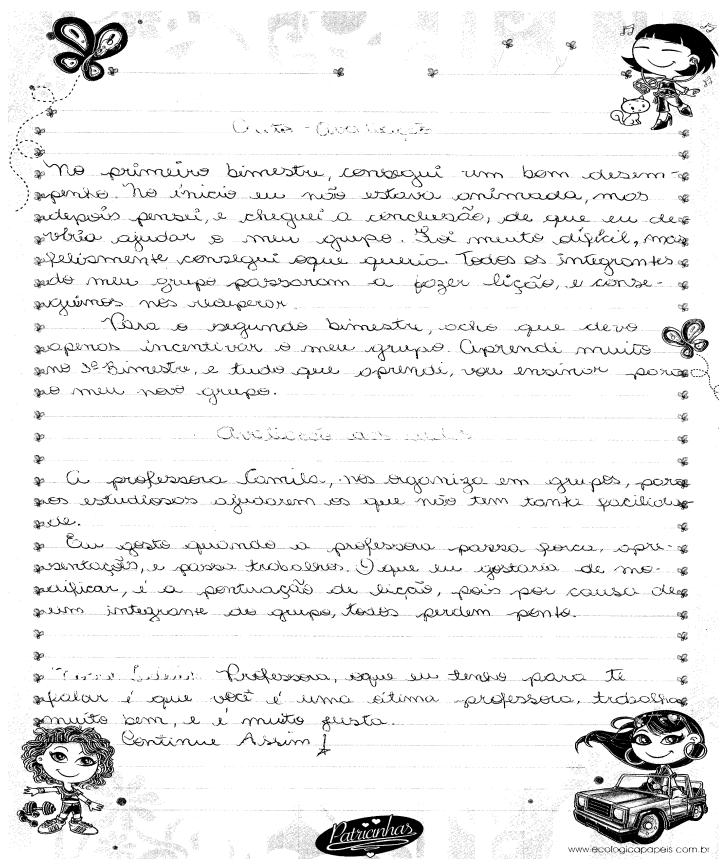 Auto-Avaliação
No primeiro bimestre, consegui um bom desem-
penho. No início eu não estava animada, mas
depois pensei, e cheguei a conclusão, de que eu de
veria ajudar o meu grupo. Foi muito díficil, mas
felismente consegui oque queria. Todos os integrantes
do meu grupo passaram a fazer lição, e conse-
guimos nos recuperar.
Para o segundo bimestre, acho que devo
apenas incentivar o meu grupo. Aprendi muito
no 1º Bimestre, e tudo que aprendi, vou ensinar para
o meu novo grupo.
Avaliação das aulas
A professora Camila, nos organiza em grupos, para
os estudiosos ajudarem os que não tem tanta facilida
de.
Eu gosto quando a professora passa forca, apre-
sentações, e passa trabalhos. O que eu gostaria de mo-
dificar, é a pontuação de lição, pois por causa de
um integrante do grupo, todos perdem ponto.
Professora, oque eu tenho para te
falar é que você é uma ótima professora, trabalha
muito bem, e é muito justa.
Continue Assim!
Patricinhas
www.ecologicapapeis.com.br